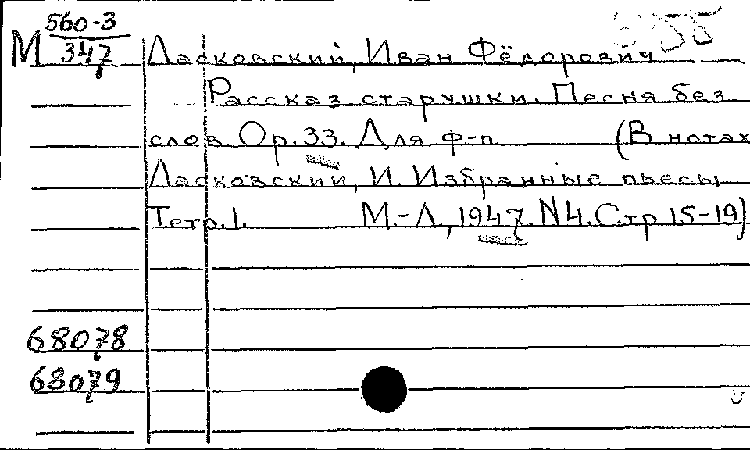 М 560-3
347
Ласковский, Иван Фёдорович
Рассказ старушки. Песня без
слов Ор. 33. Для ф-п. (В нотах
Ласковский, И. Избранные пьесы
Тетр. 1. М.-Л., 1947. N4. Стр 15-19)
68078
68079